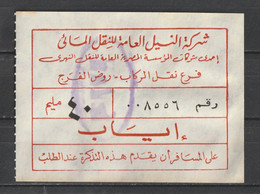 شركة النيل العامة للنقل المائى
إحدى شركات المؤسسة المصرية العامة للنقل النهرى
فرع نقل الركاب - روض الفرج
رقم ٠٠٨٥٥٦ ٤٠ مليم
إياب
على المسافر أن يقدم هذه التذكرة عند الطلب